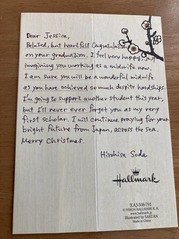 Dear Jessica,
Belated, but heartfelt Congratulations
on your graduation. I feel very happy
imagining you working as a midwife now.
I am sure you will be a wonderful midwife
as you have achieved so much despite hardships.
I'm going to support another student this year,
but I'll never ever forget you as my very
first scholar. I will continue praying for your
bright future from Japan, across the sea.
Merry Christmas.
Hirohisa Suda
Hallmark
Made in China